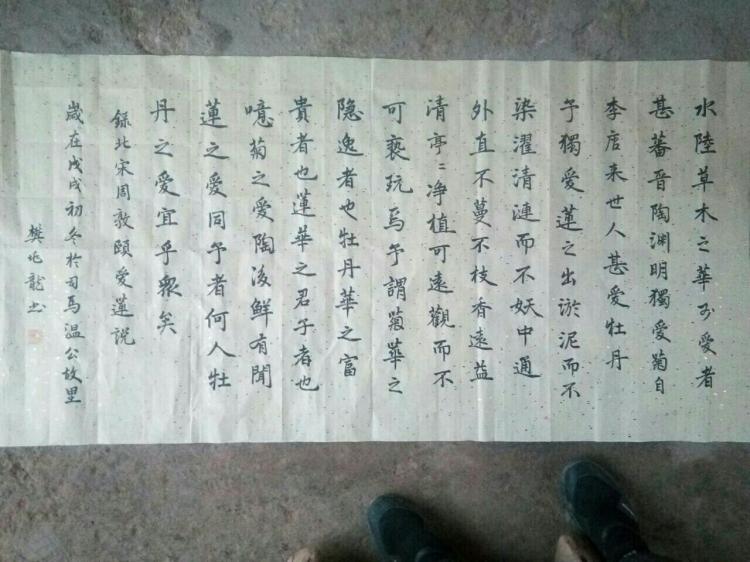 水陸草木之華可愛者
甚蕃晉陶渊明獨愛菊自
李唐来世人甚愛牡丹
予獨愛蓮之出淤泥而不
染濯清漣而不妖中通
外直不蔓不枝香遠益
清亭〻净植可遠觀而不
可褻玩焉予謂菊華之
隐逸者也牡丹華之富
貴者也蓮華之君子者也
噫菊之愛陶後鮮有聞
蓮之愛同予者何人牡
丹之愛宜乎衆矣
錄北宋周敦頤愛蓮说
歲在戊戌初冬於司馬温公故里
樊兆龍书